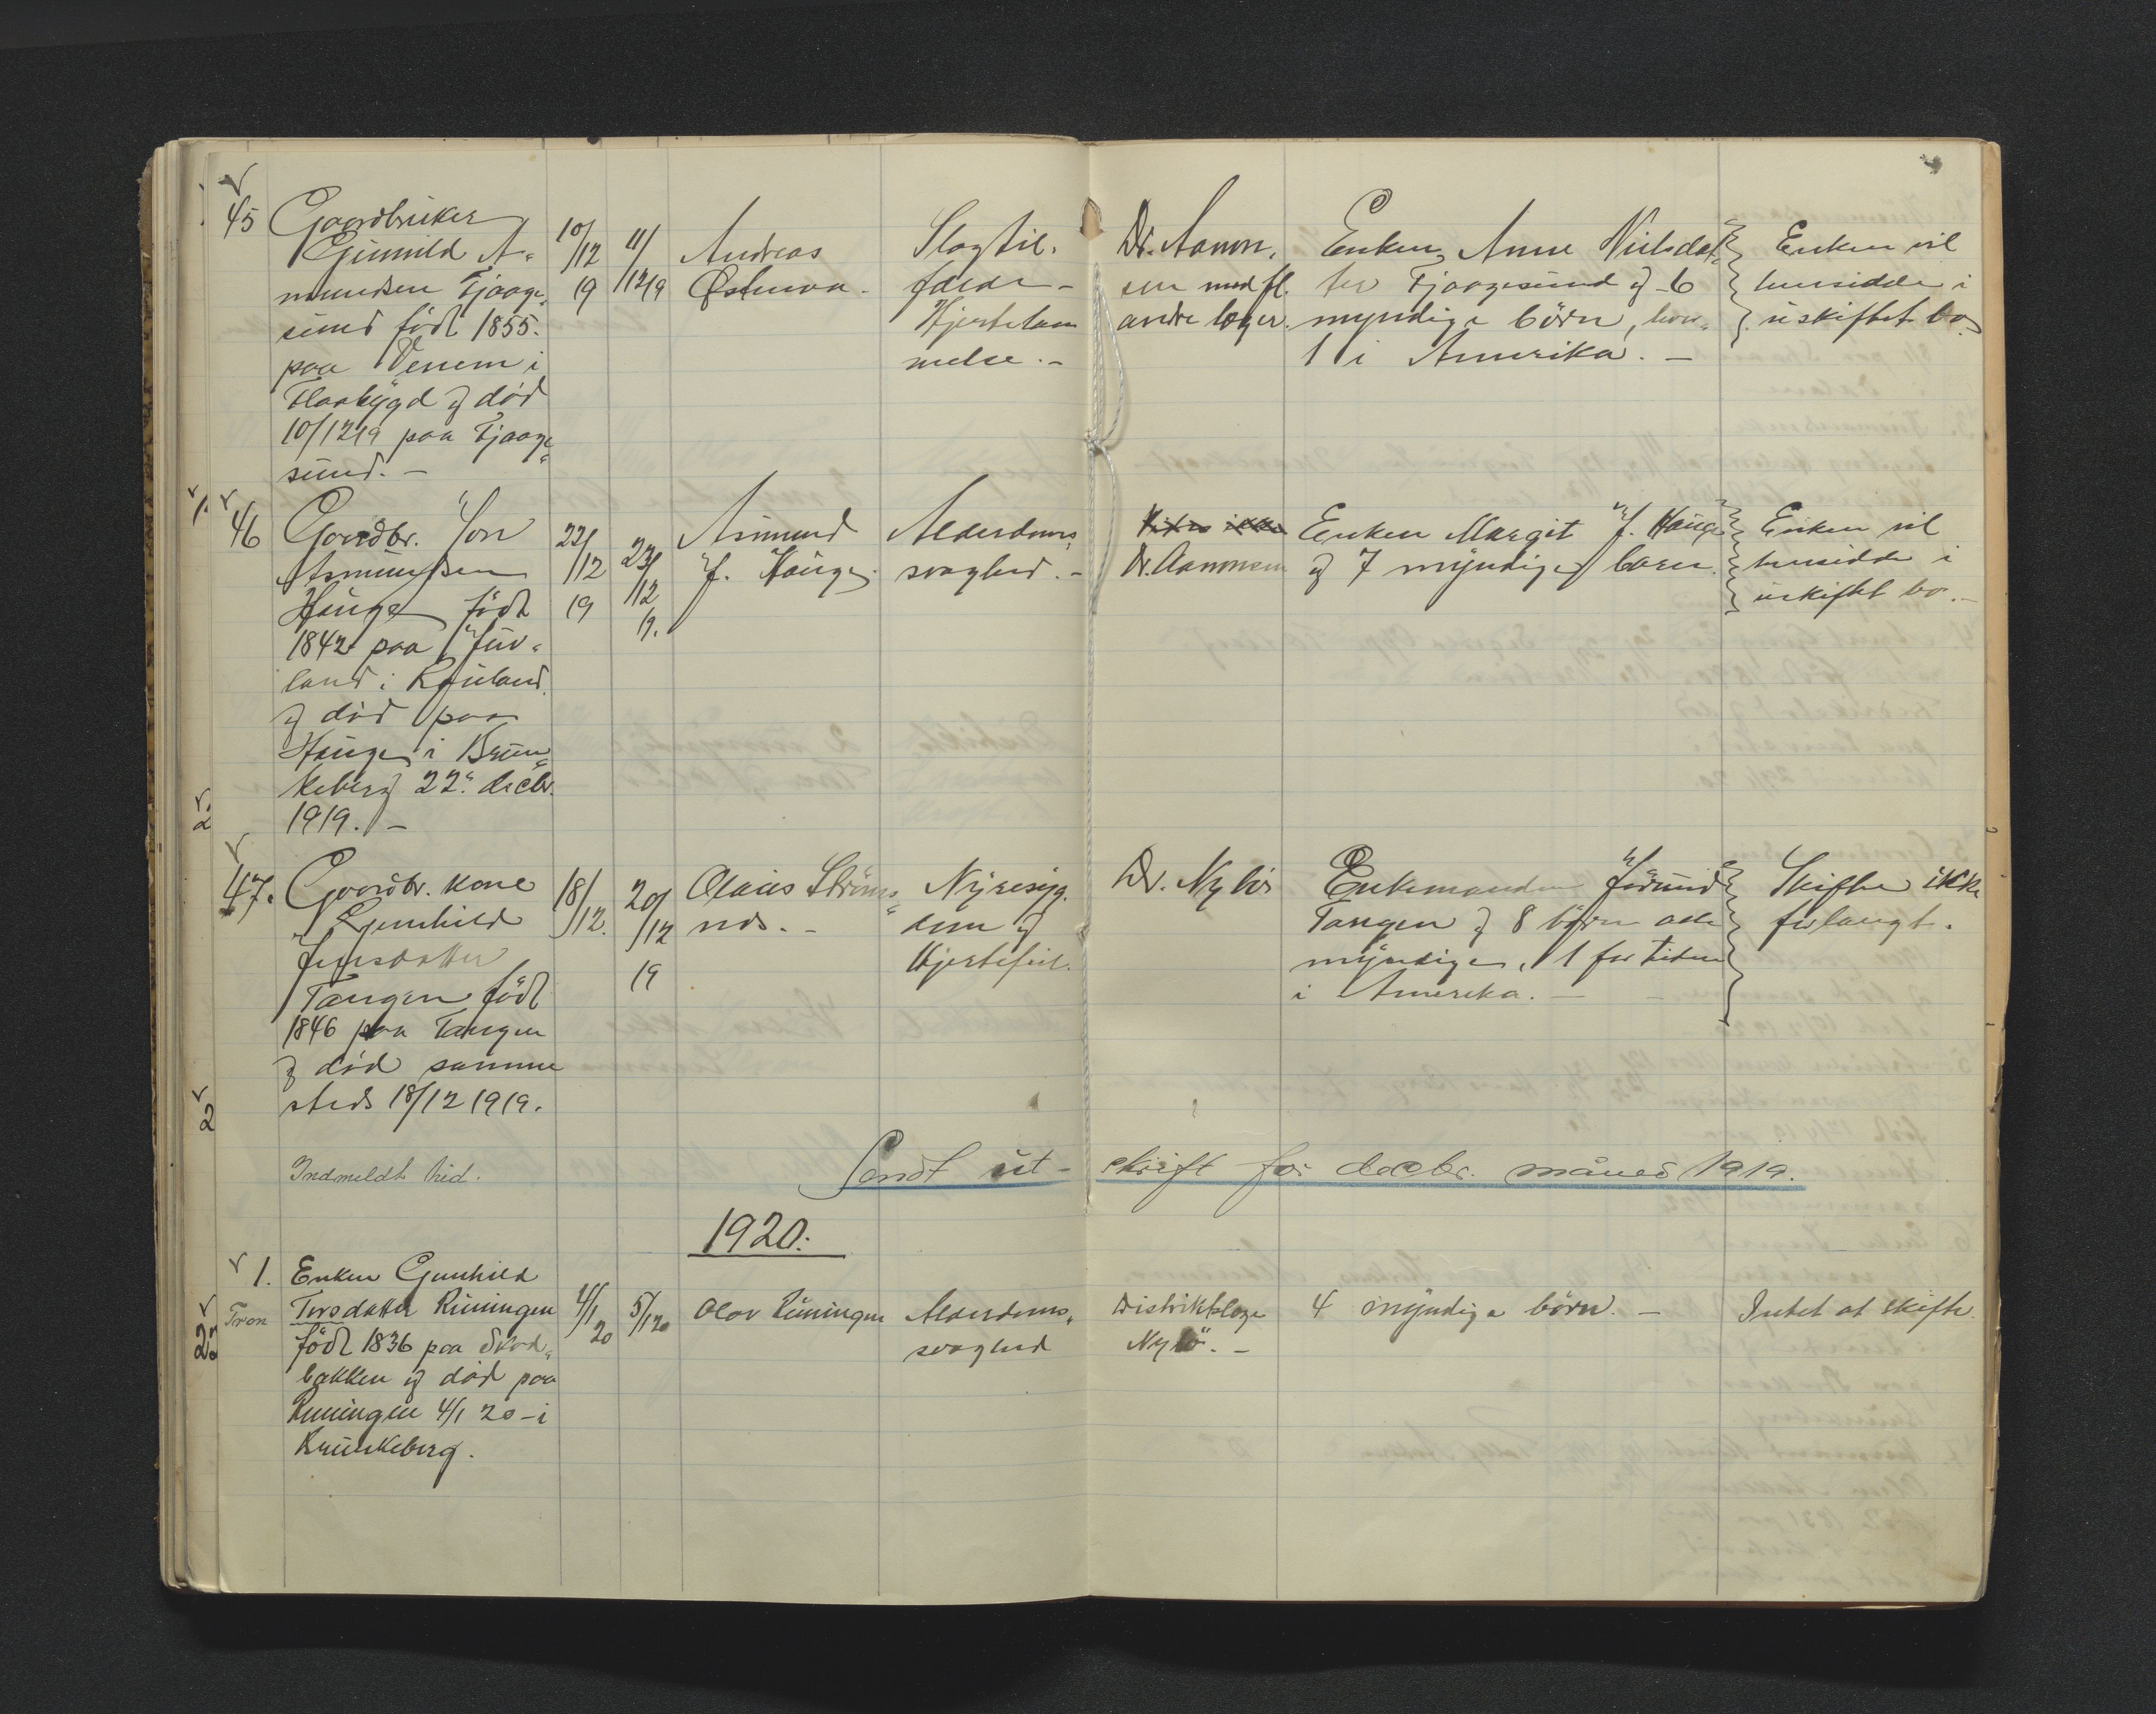 45 Gaardbruker
Gunuld A-
mundsen Fjaage-
sund födt 1855.
paa Venem i
Flaabygd og död
10/12 19 paa Fjaage-
sund. -
10/12 19
11/12 19
Andreas
Østmoa -
Slagtil-
fælde -
Hjertelam
melse. -
Dr. Aamon,
sen med fl.
andre læger.
Enken, Anne Nielsdat-
ter Fjaagesund og 6
myndige börn, hvor-
1 i Amerika. -
Enken vil
hensidde i
uskiftet bo
46 Gaardbr. Jon
Asmundsen
Hauge födt
1842 paa Juv-
land i Rauland.
og död paa
Hauge i Brun-
keberg 22. decbr.
1919. -
22/12 19
23/12 19.
Asmund
J. Hauge.
Alderdoms-
svaghed. -
Dr. Aamonsen
Enken Margit J. Hauge
og 7 myndige barn.
Enken vil
hensidde i
uskiftet bo. -
47. Gaardbr. kone
Gunhild
Jensdatter
Tangen födt
1846 paa Tangen
og död samme
steds 18/12 1919.
18/12.
20/12 19
Olaus Ströms-
nds. -
Nyresyg.
dom og
Hjertefeil.
Dr. Nylö
Enkemanden Jörund
Tangen og 8 börn alle
myndige, 1 for tiden
i Amerika. -
Skifte ikke
forlangt.
Indmeldt hid.
Sendt ut-skrift for decbr. måned 1919.
1920.
1. Enken Gunhild
Tron Torsdatter Runingen
födt 1836 paa Skod-
bakken og död paa
Runingen 4/1 20 - i
Brunkeberg.
4/1 20
5/1 20
Olav Runingen
Alderdoms-
svaghed
Distriktslæge
Nylö. -
4 myndige börn. -
Intet at skifte.